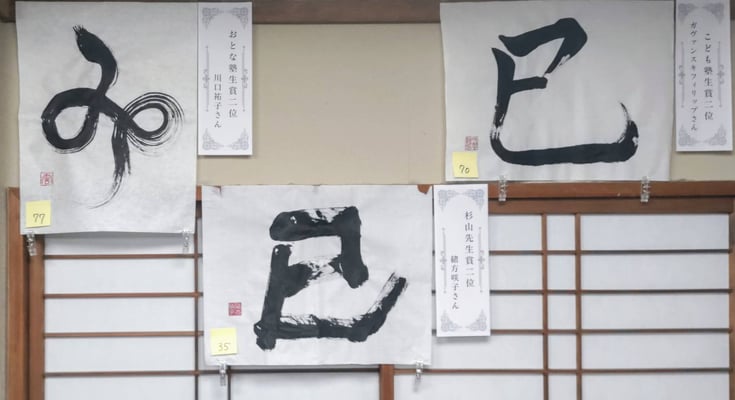 み
77
おとな塾生賞二位
川口祐子さん
巳
70
こども塾生賞二位
ガヴァンスキフィリップさん
巳
35
杉山先生賞二位
緒方咲子さん